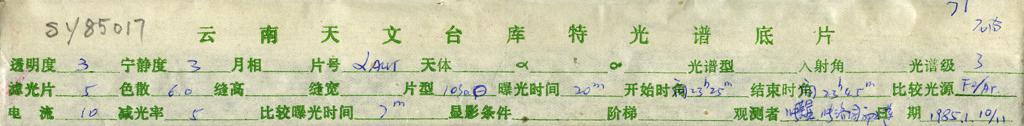 SY85017
云南天文台库特光谱底片
透明度 3 宁静度 3 月相 片号 天体 α δ 光谱型 入射角 光谱级 3
滤光片 5 色散 6.0 缝高 缝宽 片型 103aO 曝光时间 20m 开始时间 23h25m 结束时间 23h45m 比较光源 Fe/Ar
电流 10 减光率 5 比较曝光时间 7m 显影条件 阶梯 观测者 日期 1985.1.10/11